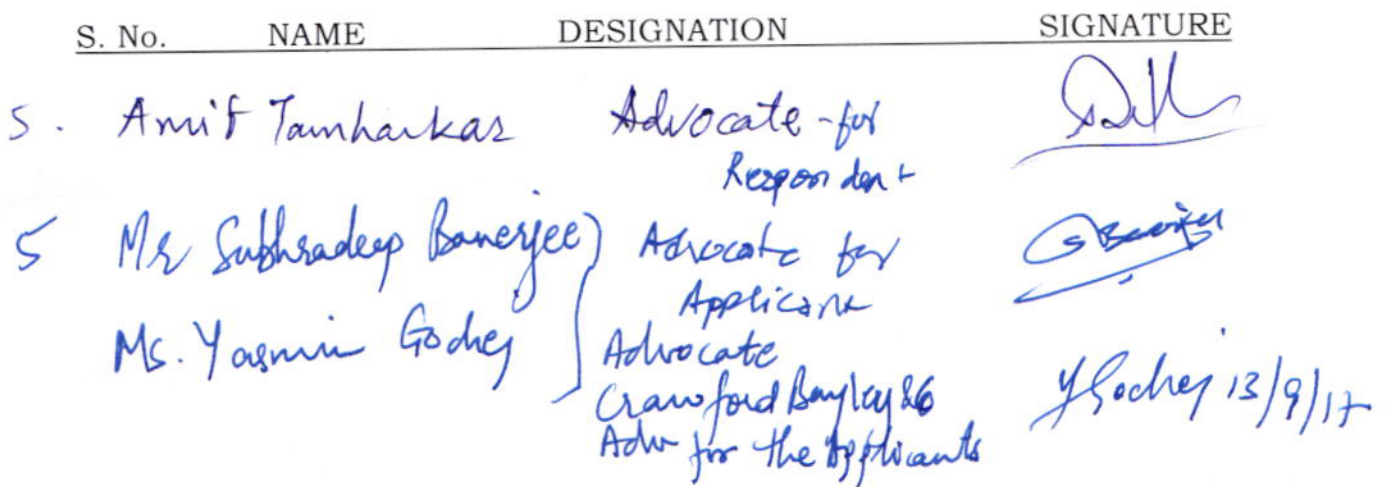 S. No. NAME DESIGNATION SIGNATURE
5. Amit Tamharkar Advocate - for
Respondent
5 Mr Subhradeep Banerjee) Advocate for S Banerjee
Applicant
Ms. Yasmin Godrej Advocate
Crawford Bayley & Co YGodrej 13/9/17
Adv for the Applicants